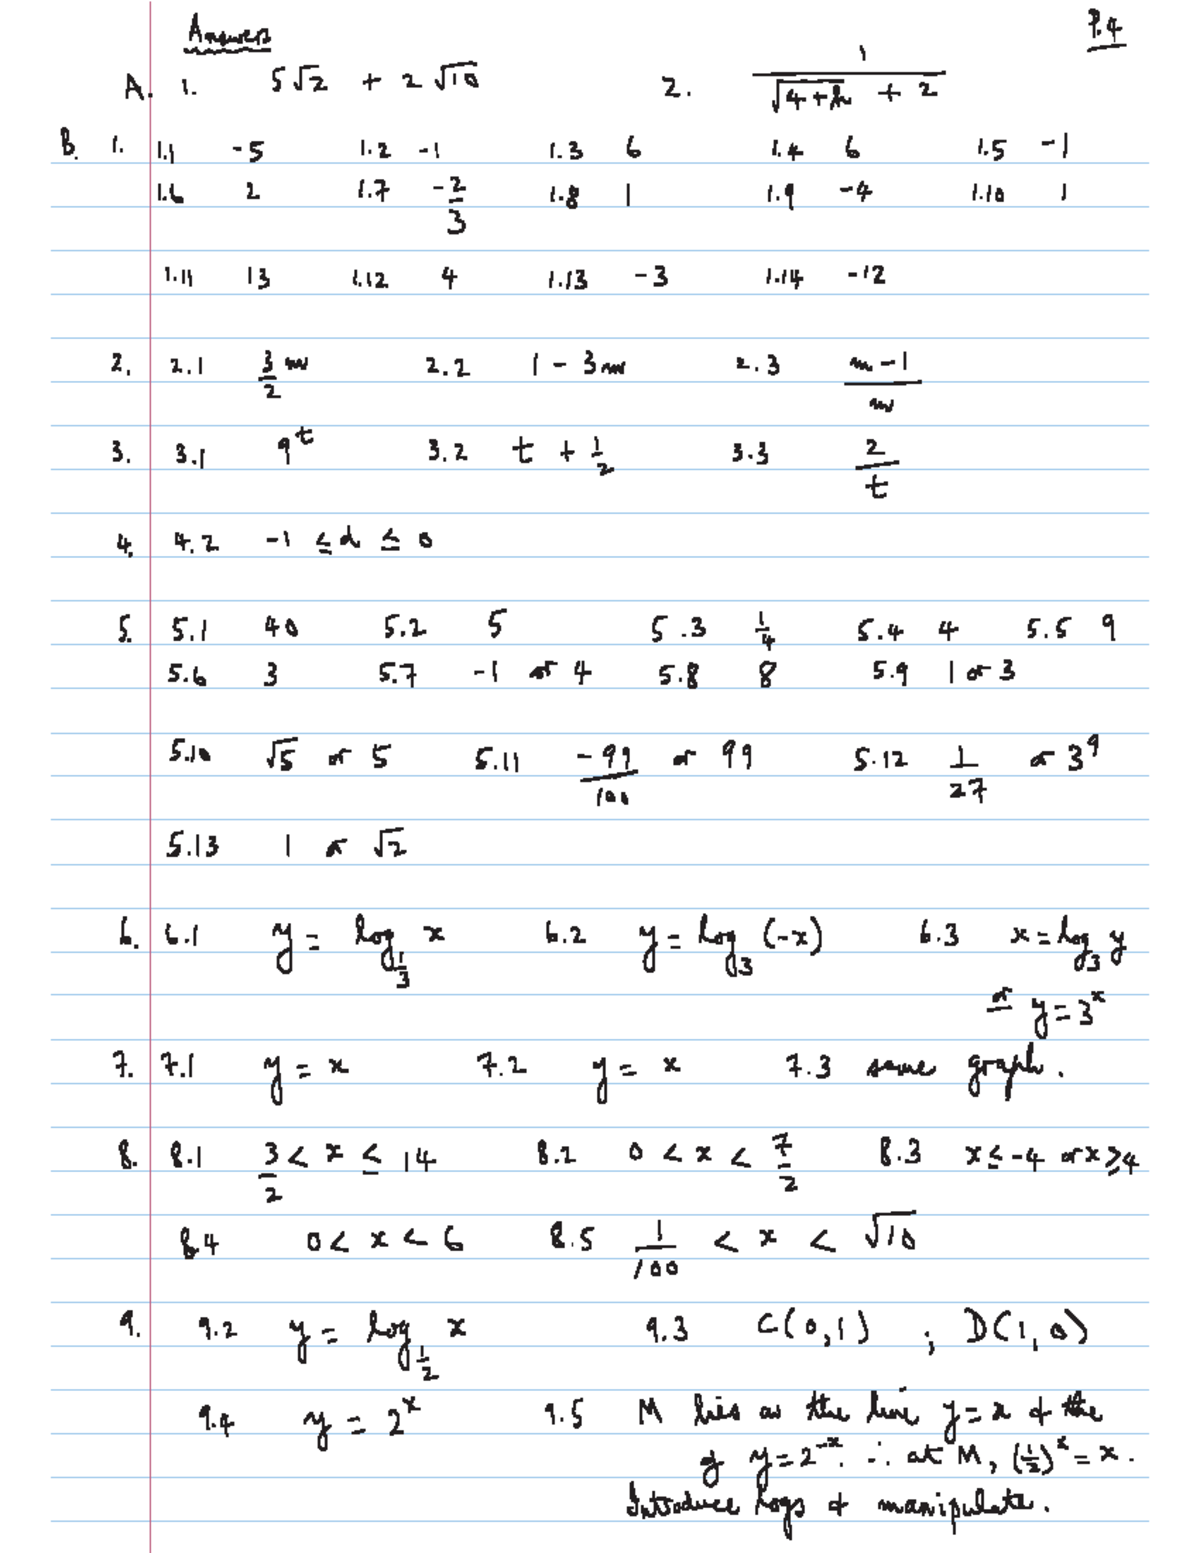 Answers P.4
A. 1. 5√2 + 2√10 2. 1/(√(4+h) + 2)
B. 1. 1.1 -5 1.2 -1 1.3 6 1.4 6 1.5 -1
1.6 2 1.7 -2/3 1.8 1 1.9 -4 1.10 1
1.11 13 1.12 4 1.13 -3 1.14 -12
2. 2.1 3/2 m 2.2 1 - 3m 2.3 (m-1)/m
3. 3.1 9^t 3.2 t + 1/2 3.3 2/t
4. 4.2 -1 ≤ d ≤ 0
5. 5.1 40 5.2 5 5.3 1/4 5.4 4 5.5 9
5.6 3 5.7 -1 or 4 5.8 8 5.9 1 or 3
5.10 √5 or 5 5.11 -99/100 or 99 5.12 1/27 or 3^9
5.13 1 or √2
6. 6.1 y = log_(1/3) x 6.2 y = log_3 (-x) 6.3 x = log_3 y
or y = 3^x
7. 7.1 y = x 7.2 y = x 7.3 same graph.
8. 8.1 3/2 < x ≤ 14 8.2 0 < x < 7/2 8.3 x ≤ -4 or x ≥ 4
8.4 0 < x < 6 8.5 1/100 < x < √10
9. 9.2 y = log_(1/2) x 9.3 C(0,1) ; D(1,0)
9.4 y = 2^x 9.5 M lies on the line y = x & the
g y = 2^-x. ∴ at M, (1/2)^x = x.
Introduce logs & manipulate.